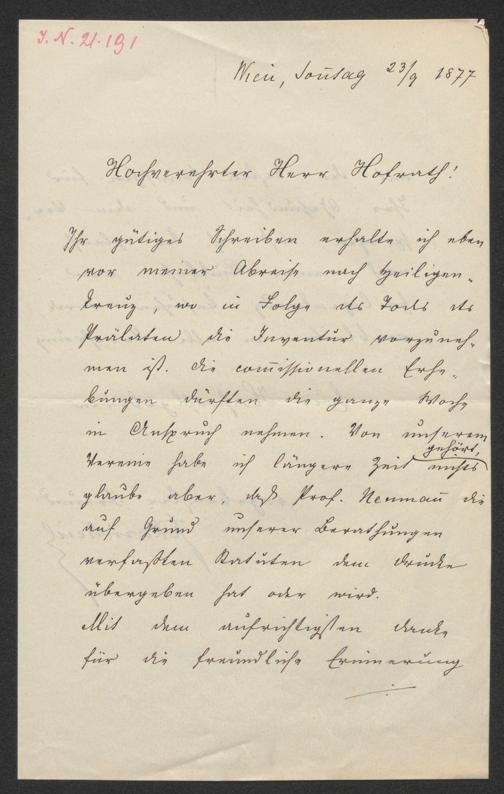 J. N. 21.191
Wien, Sonntag 23/9 1877
Hochverehrter Herr Hofrath!
Ihr gütiges Schreiben erhalte ich eben
vor meiner Abreise nach Heiligen-
kreuz, wo in Folge des Tods des
Prälaten die Inventur vorzuneh-
men ist. Die com̄issionellen Erhe-
bungen dürften die ganze Woche
in Anspruch nehmen. Von unserem
gehört,
Vereine habe ich längere Zeit nichts
glaube aber, daß Prof. Neuman̄ die
auf Grund unserer Berathungen
verfaßten Statuten dem Drucke
übergeben hat oder wird.
Mit dem aufrichtigsten Danke
für die freundliche Erinnerung